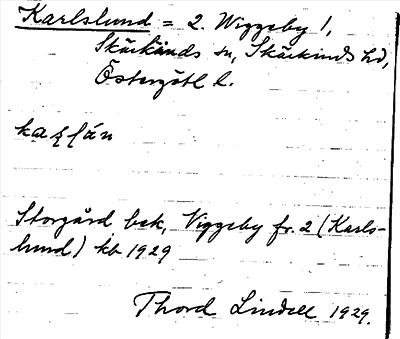 Karlslund = 2. Wiggeby /,
Skärkinds sn, Skärkinds hd,
Östergötl l.
Storgård, bek, Viggeby fr. 2 (Karls-
lund) kb 1929
Thord Lindell 1929.